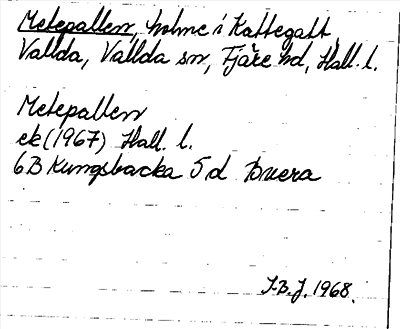 Metepallen, holme i Kattegatt,
Vallda, Vallda sn, Fjäre hd, Hall. l.
Metepallen
ek (1967) Hall. l.
6B Kungsbacka 5 d
J.B.J. 1968.